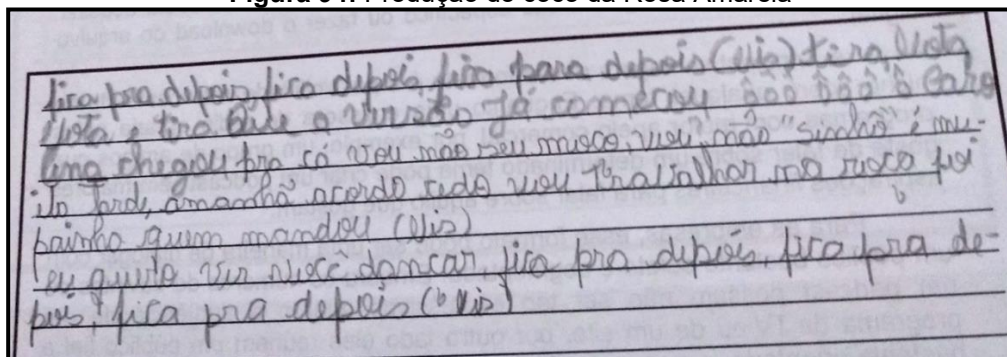 Figura 34: Produção do coco da Rosa Amarela
fica pra depois, fica depois, fica para depois (Bis) tira, bota
bota, e tira que a versão já começou ôoo ôoô ô Caro
lina chegou pra cá vou não seu moço, vou não "sinhô" é mu-
ito tarde, amanhã acordo cedo vou trabalhar na roça foi
painho quem mandou (Bis)
eu quero ver você dançar fica pra depois, fica pra de-
pois, fica pra depois (Bis)